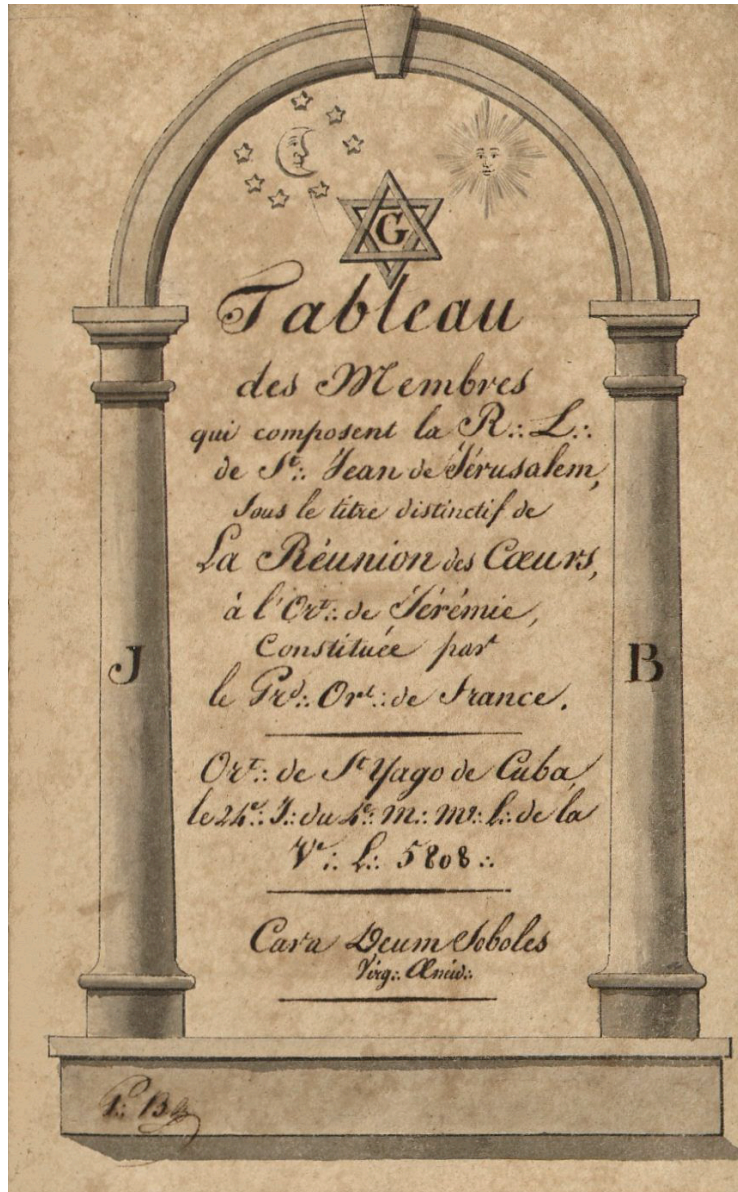 G
Tableau
des Membres
qui composent la R∴ L∴
de St∴ Jean de Jérusalem,
sous le titre distinctif de
La Réunion des Cœurs,
à l'Ort∴ de Jérémie,
Constituée par
le Grd∴ Ort∴ de France.
J
B
Ort∴ de St Yago de Cuba,
le 24e∴ J∴ du 4e∴ m∴ mq∴ l∴ de la
Ve∴ L∴ 5808∴
Cara Deum Soboles
Virg∴ Æneid∴